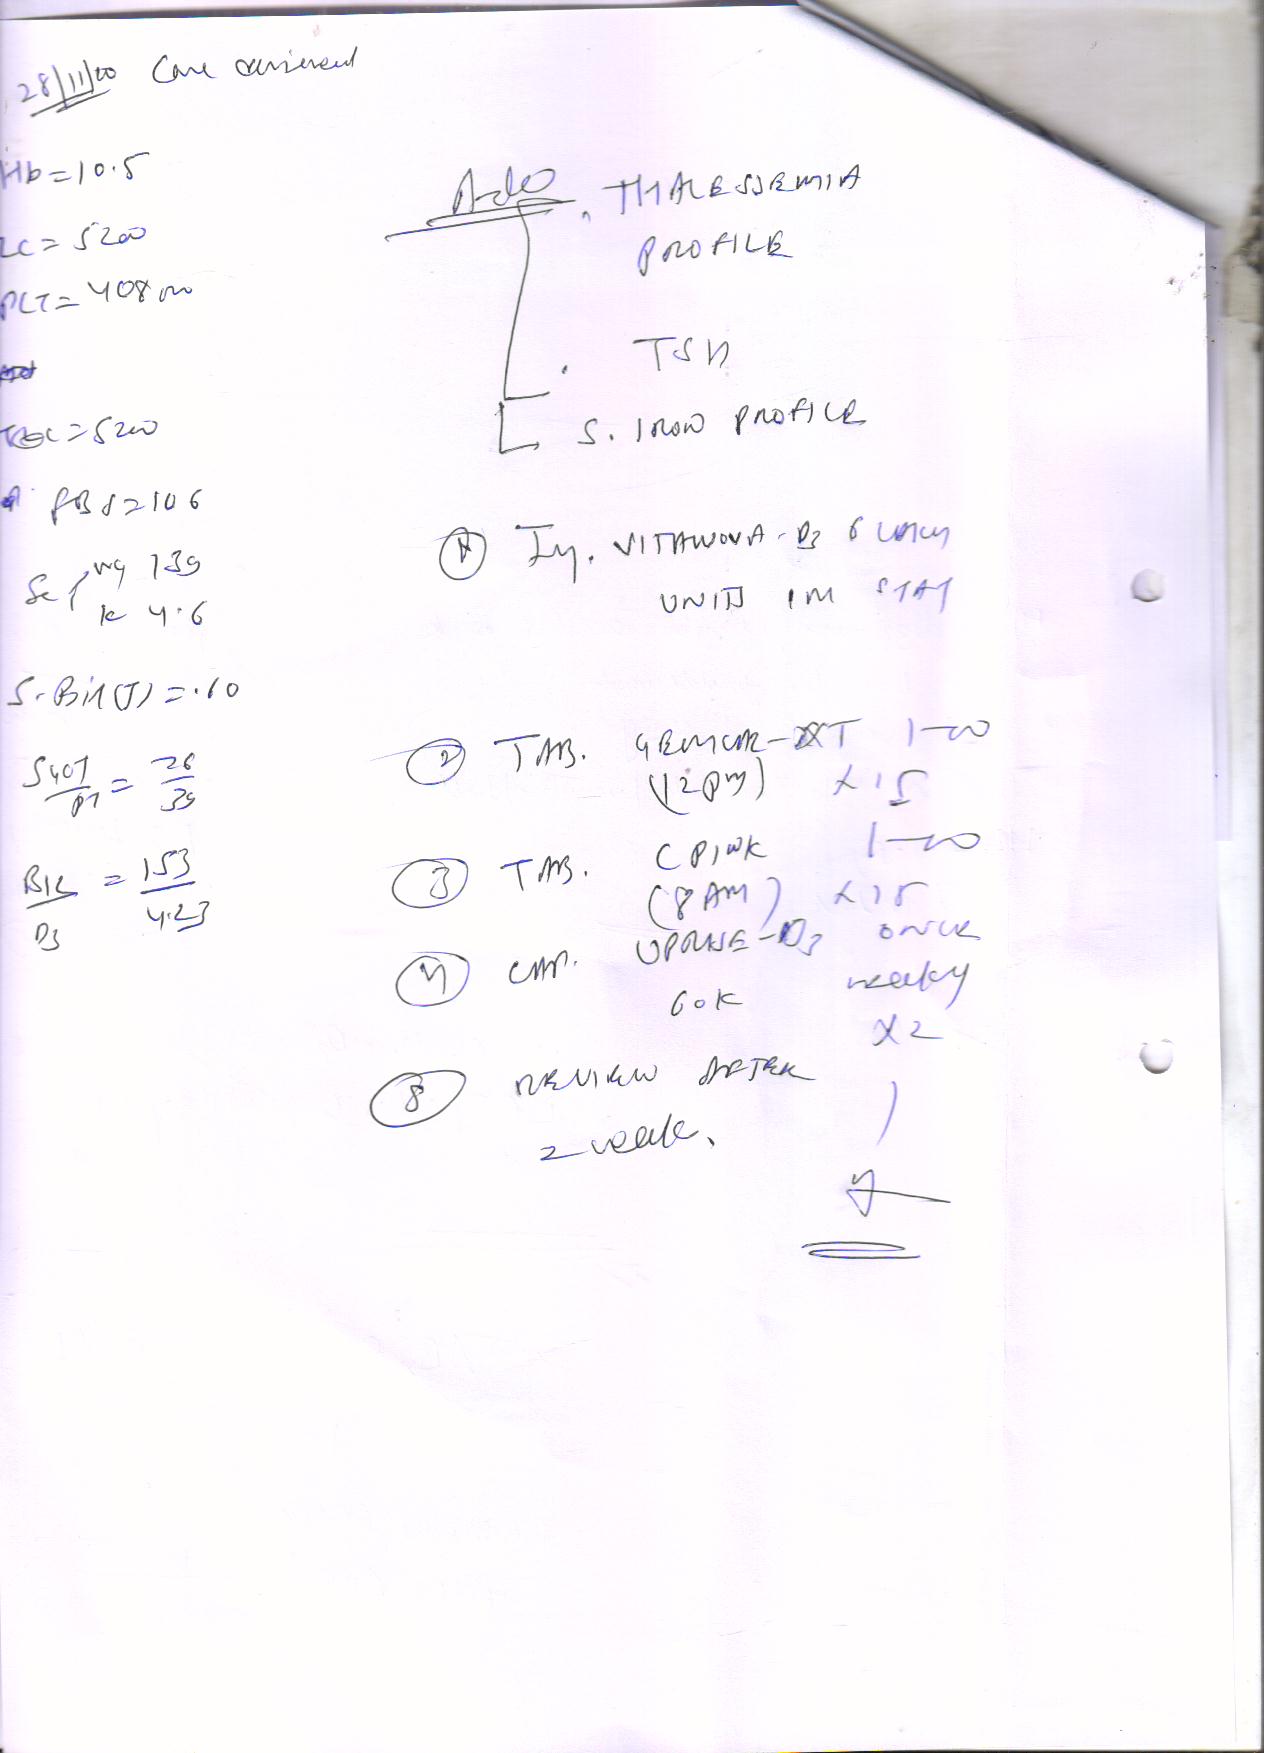 28/11/00 Case reviewed
Hb = 10.5
LC = 5200
PLT = 408000
TLC = 5200
FBS = 106
Se Na 139
K 4.6
S. Bil (T) = .60
SGOT/PT = 26/39
B12/D3 = 153/4.23
Adv
. THALESSEMIA
PROFILE
. TSH
S. IRON PROFILE
① Inj. VITANOVA-D3 6 LACS
UNITS IM STAT
② TAB. GEMCAL-XT 1-00
(12 pm) x 15
③ TAB. CPINK 1-00
(8 AM) x 15
④ CAP. UPRISE-D3 ONCE
60K weekly
X 2
REVIEW AFTER
2 week.